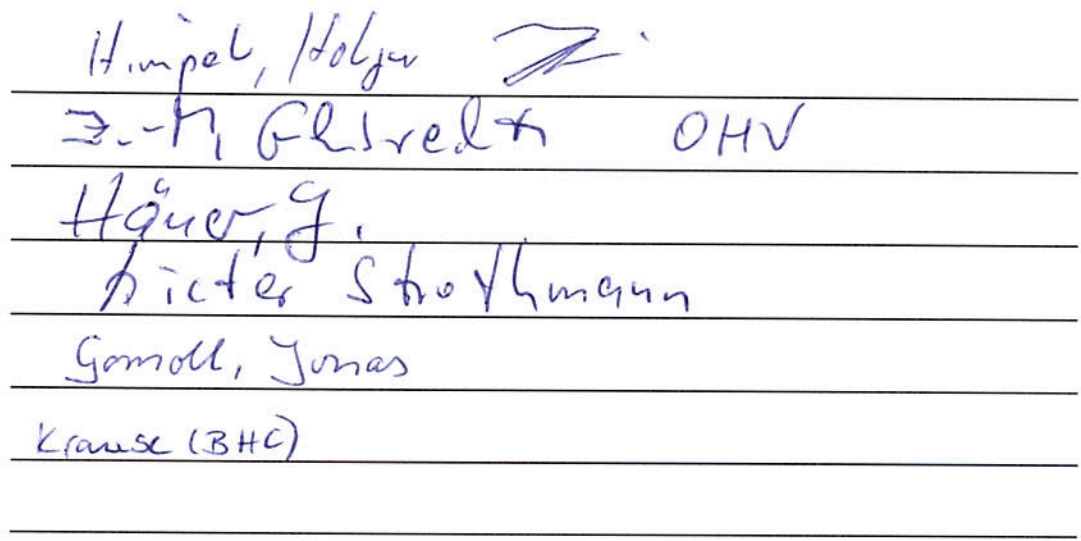 Himpel, Holger
OHV
Häner, G.
Dieter Strothmann
Gomoll, Jonas
Krause (BHC)